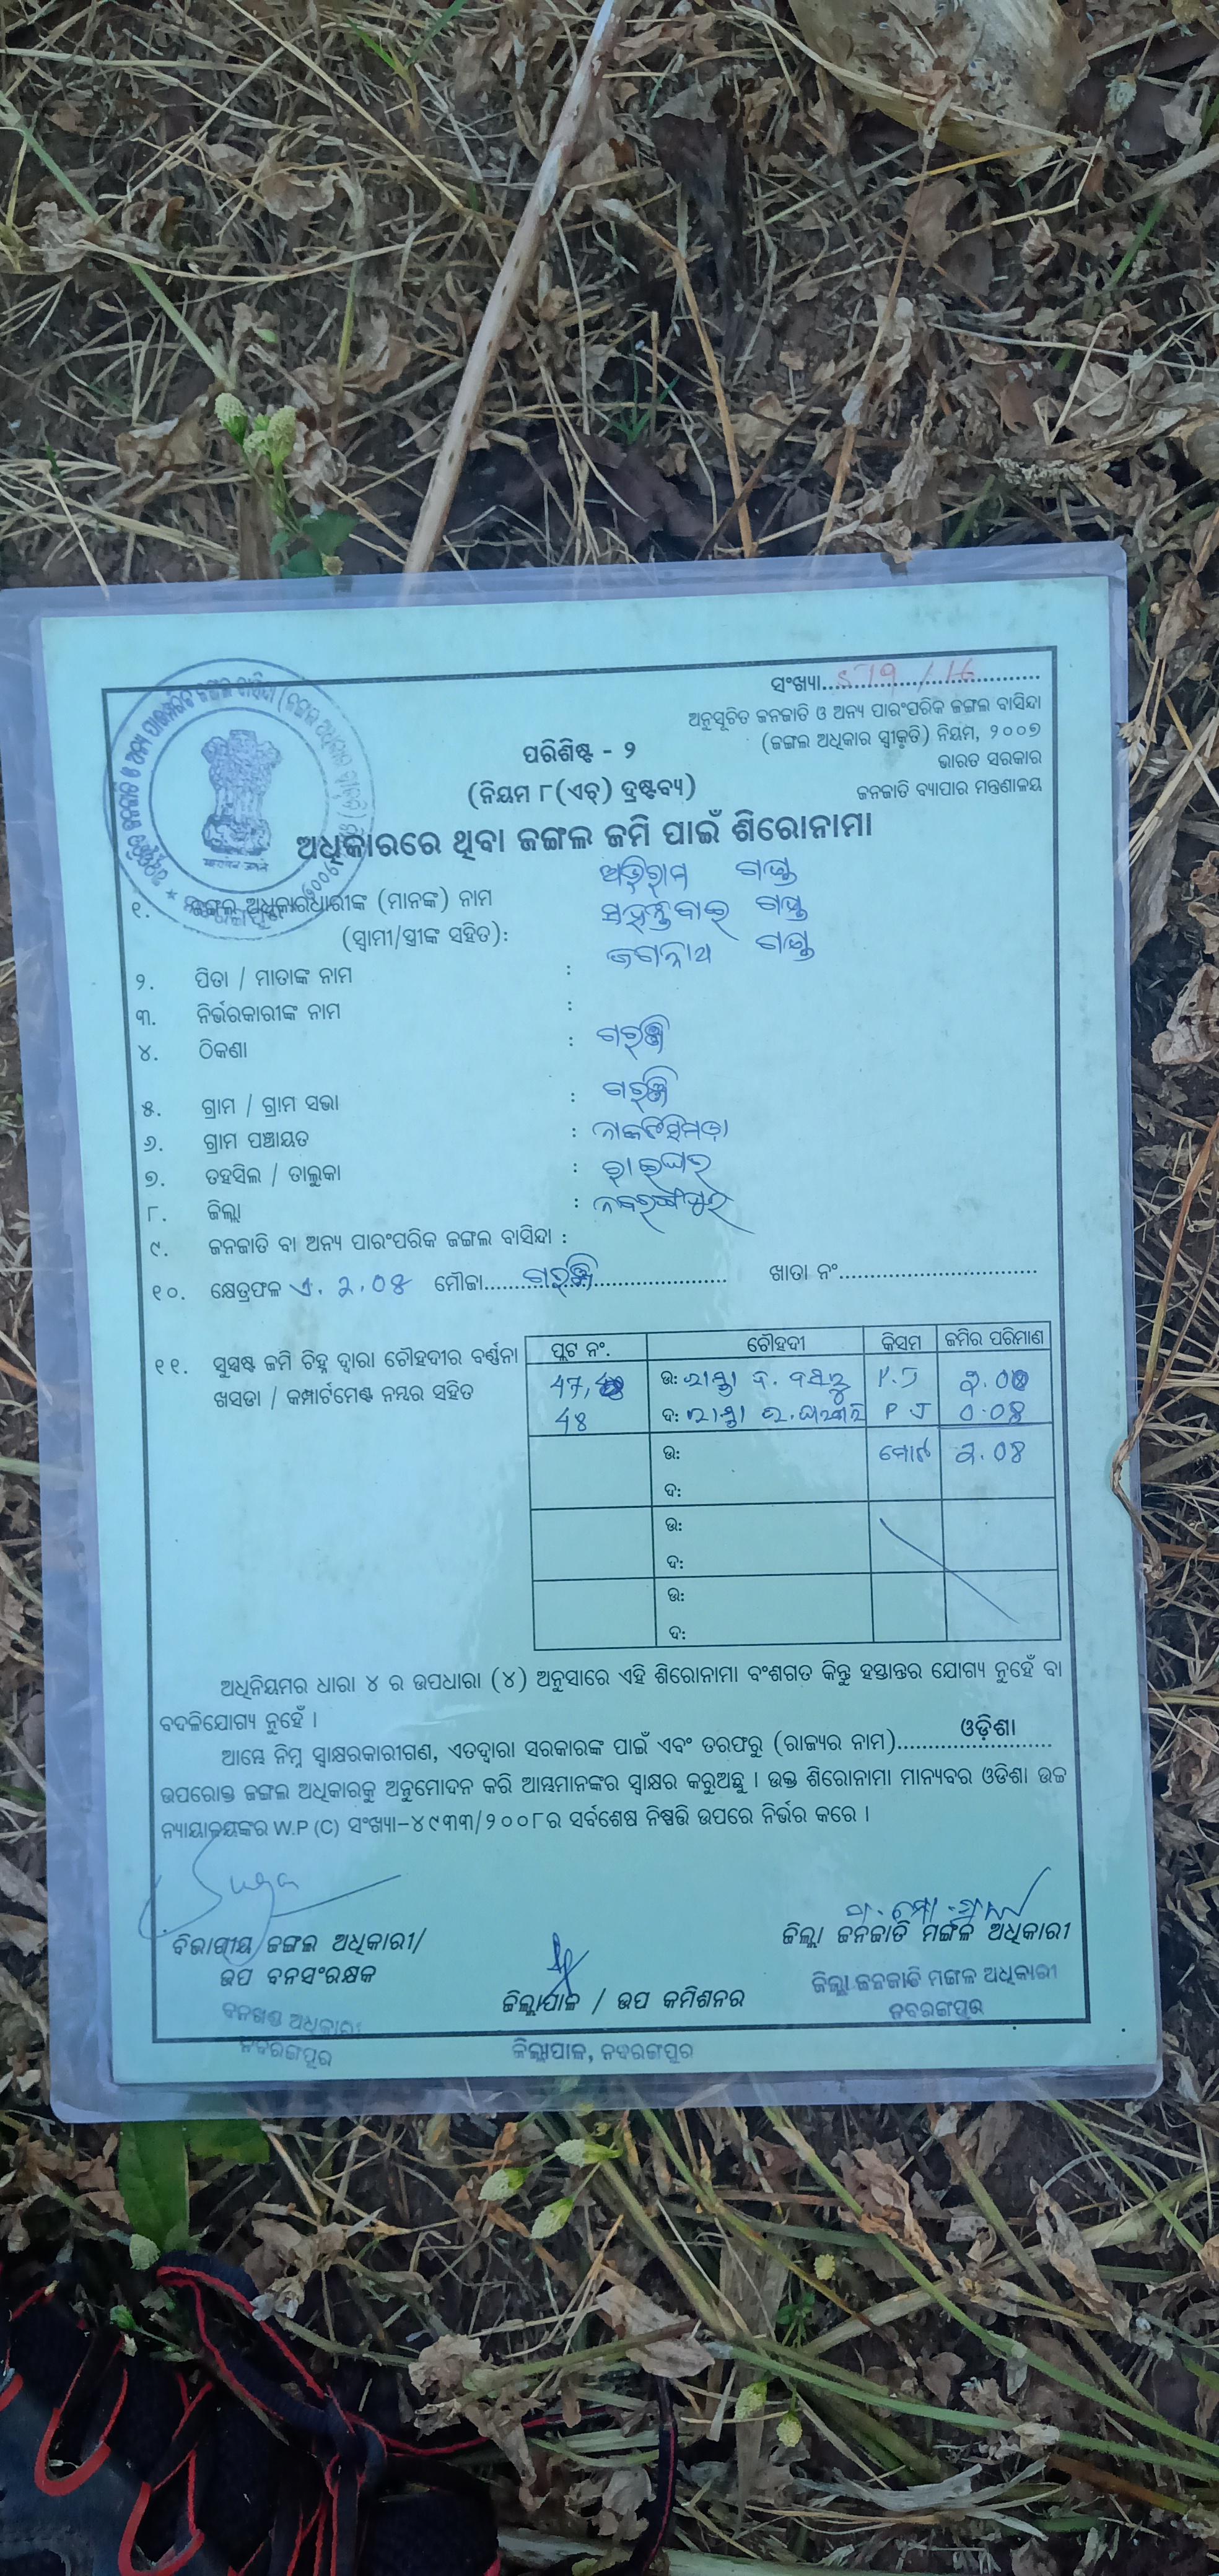 ସଂଖ୍ୟା.............../16
ଅନୁସୂଚିତ ଜନଜାତି ଓ ଅନ୍ୟ ପାରଂପରିକ ଜଙ୍ଗଲ ବାସିନ୍ଦା
(ଜଙ୍ଗଲ ଅଧିକାର ସ୍ୱୀକୃତି) ନିୟମ, ୨୦୦୭
ଭାରତ ସରକାର
ଜନଜାତି ବ୍ୟାପାର ମନ୍ତ୍ରଣାଳୟ
ପରିଶିଷ୍ଟ - ୨
(ନିୟମ ୮(ଏଚ୍) ଦ୍ରଷ୍ଟବ୍ୟ)
ଅଧିକାରରେ ଥିବା ଜଙ୍ଗଲ ଜମି ପାଇଁ ଶିରୋନାମା
୧. ଜଙ୍ଗଲ ଅଧିକାରଧାରୀଙ୍କ (ମାନଙ୍କ) ନାମ ଅଭିରାମ ଗଣ୍ଡ
(ସ୍ୱାମୀ/ସ୍ତ୍ରୀଙ୍କ ସହିତ): ଗଣ୍ଡ
୨. ପିତା / ମାତାଙ୍କ ନାମ : ଜଗନ୍ନାଥ ଗଣ୍ଡ
୩. ନିର୍ଭରକାରୀଙ୍କ ନାମ :
୪. ଠିକଣା : ଗରଞ୍ଜି
୫. ଗ୍ରାମ / ଗ୍ରାମ ସଭା : ଗରଞ୍ଜି
୬. ଗ୍ରାମ ପଞ୍ଚାୟତ :
୭. ତହସିଲ / ତାଲୁକା : ରାଇଘର
୮. ଜିଲ୍ଲା : ନବରଙ୍ଗପୁର
୯. ଜନଜାତି ବା ଅନ୍ୟ ପାରଂପରିକ ଜଙ୍ଗଲ ବାସିନ୍ଦା :
୧୦. କ୍ଷେତ୍ରଫଳ ଏ. ୨.୦୪ ମୌଜା......ଗରଞ୍ଜି...................... ଖାତା ନଂ................................
୧୧. ସୁସ୍ପଷ୍ଟ ଜମି ଚିହ୍ନ ଦ୍ୱାରା ଚୌହଦୀର ବର୍ଣ୍ଣନା
ଖସଡା / କମ୍ପାର୍ଟମେଣ୍ଟ ନମ୍ବର ସହିତ
ପ୍ଲଟ ନଂ. ଚୌହଦୀ କିସମ ଜମିର ପରିମାଣ
47, ଉ: ରାସ୍ତା P.J ୨.୦୦
48 ଦ: ରାସ୍ତା P J ୦.୦୪
ଉ: ମୋଟ ୨.୦୪
ଦ:
ଉ:
ଦ:
ଉ:
ଦ:
ଅଧିନିୟମର ଧାରା ୪ ର ଉପଧାରା (୪) ଅନୁସାରେ ଏହି ଶିରୋନାମା ବଂଶଗତ କିନ୍ତୁ ହସ୍ତାନ୍ତର ଯୋଗ୍ୟ ନୁହେଁ ବା
ବଦଳିଯୋଗ୍ୟ ନୁହେଁ ।
ଆମ୍ଭେ ନିମ୍ନ ସ୍ୱାକ୍ଷରକାରୀଗଣ, ଏତଦ୍ୱାରା ସରକାରଙ୍କ ପାଇଁ ଏବଂ ତରଫରୁ (ରାଜ୍ୟର ନାମ)..........ଓଡ଼ିଶା..........
ଉପରୋକ୍ତ ଜଙ୍ଗଲ ଅଧିକାରକୁ ଅନୁମୋଦନ କରି ଆମ୍ଭମାନଙ୍କର ସ୍ୱାକ୍ଷର କରୁଅଛୁ । ଉକ୍ତ ଶିରୋନାମା ମାନ୍ୟବର ଓଡିଶା ଉଚ୍ଚ
ନ୍ୟାୟାଳୟଙ୍କର W.P (C) ସଂଖ୍ୟା-୪୯୩୩/୨୦୦୮ର ସର୍ବଶେଷ ନିଷ୍ପତ୍ତି ଉପରେ ନିର୍ଭର କରେ ।
ବିଭାଗୀୟ ଜଙ୍ଗଲ ଅଧିକାରୀ/
ଉପ ବନସଂରକ୍ଷକ
ବନଖଣ୍ଡ ଅଧିକାରୀ
ନବରଙ୍ଗପୁର
ଜିଲ୍ଲାପାଳ / ଉପ କମିଶନର
ଜିଲ୍ଲାପାଳ, ନବରଙ୍ଗପୁର
ଜିଲ୍ଲା ଜନଜାତି ମଙ୍ଗଳ ଅଧିକାରୀ
ଜିଲ୍ଲା ଜନଜାତି ମଙ୍ଗଳ ଅଧିକାରୀ
ନବରଙ୍ଗପୁର